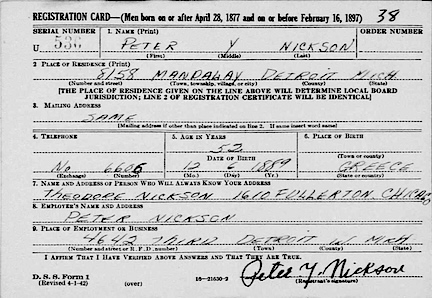 REGISTRATION CARD—(Men born on or after April 28, 1877 and on or before February 16, 1897) 38
SERIAL NUMBER 1. NAME (Print) ORDER NUMBER
U 536 PETER Y NICKSON
(First) (Middle) (Last)
2. PLACE OF RESIDENCE (Print)
8158 MANDALAY DETROIT MICH.
(Number and street) (Town, township, village, or city) (County) (State)
[THE PLACE OF RESIDENCE GIVEN ON THE LINE ABOVE WILL DETERMINE LOCAL BOARD
JURISDICTION; LINE 2 OF REGISTRATION CERTIFICATE WILL BE IDENTICAL]
3. MAILING ADDRESS
SAME
[Mailing address if other than place indicated on line 2. If same insert word same]
4. TELEPHONE 5. AGE IN YEARS 6. PLACE OF BIRTH
52
DATE OF BIRTH (Town or county)
No 6606 12 6 1889 GREECE
(Exchange) (Number) (Mo.) (Day) (Yr.) (State or country)
7. NAME AND ADDRESS OF PERSON WHO WILL ALWAYS KNOW YOUR ADDRESS
THEODORE NICKSON 1610 FULLERTON, CHICAGO
8. EMPLOYER'S NAME AND ADDRESS
PETER NICKSON
9. PLACE OF EMPLOYMENT OR BUSINESS
4642 THIRD DETROIT MICH
(Number and street or R. F. D. number) (Town) (County) (State)
I AFFIRM THAT I HAVE VERIFIED ABOVE ANSWERS AND THAT THEY ARE TRUE.
D. S. S. Form 1 16—21630-2 Peter Y. Nickson
(Revised 4-1-42) (over) (Registrant's signature)